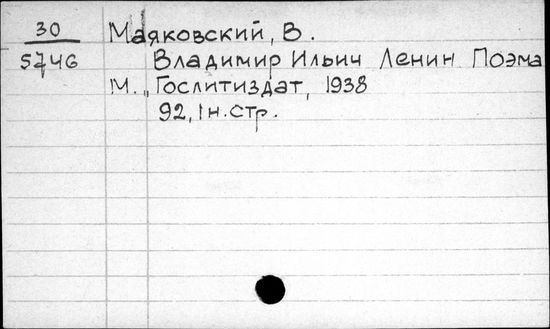 30
5746
Маяковский, В.
Владимир Ильич Ленин Поэма
М., Гослитиздат, 1938
92, 1 н. стр.